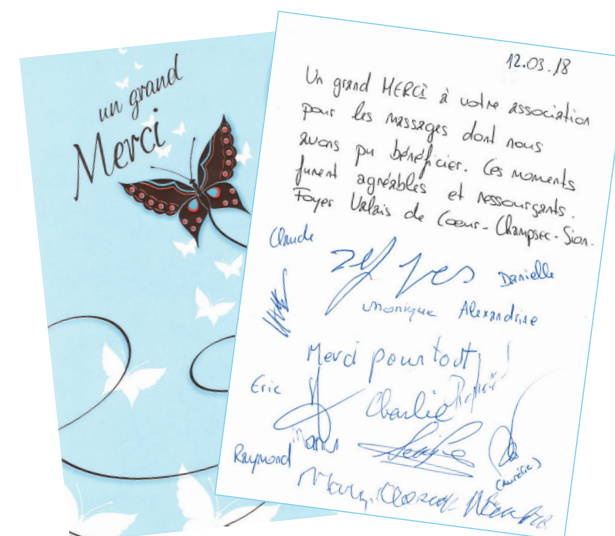 un grand
Merci
12.03.18
Un grand MERCI à votre association
pour les massages dont nous
avons pu bénéficier. Ces moments
furent agréables et ressourçants.
Foyer Valais de Coeur - Champsec - Sion.
Claude
Yves
Danielle
Monique
Alexandrine
Merci pour tout!
Eric
Charlie
Raymond
(Aurélie)